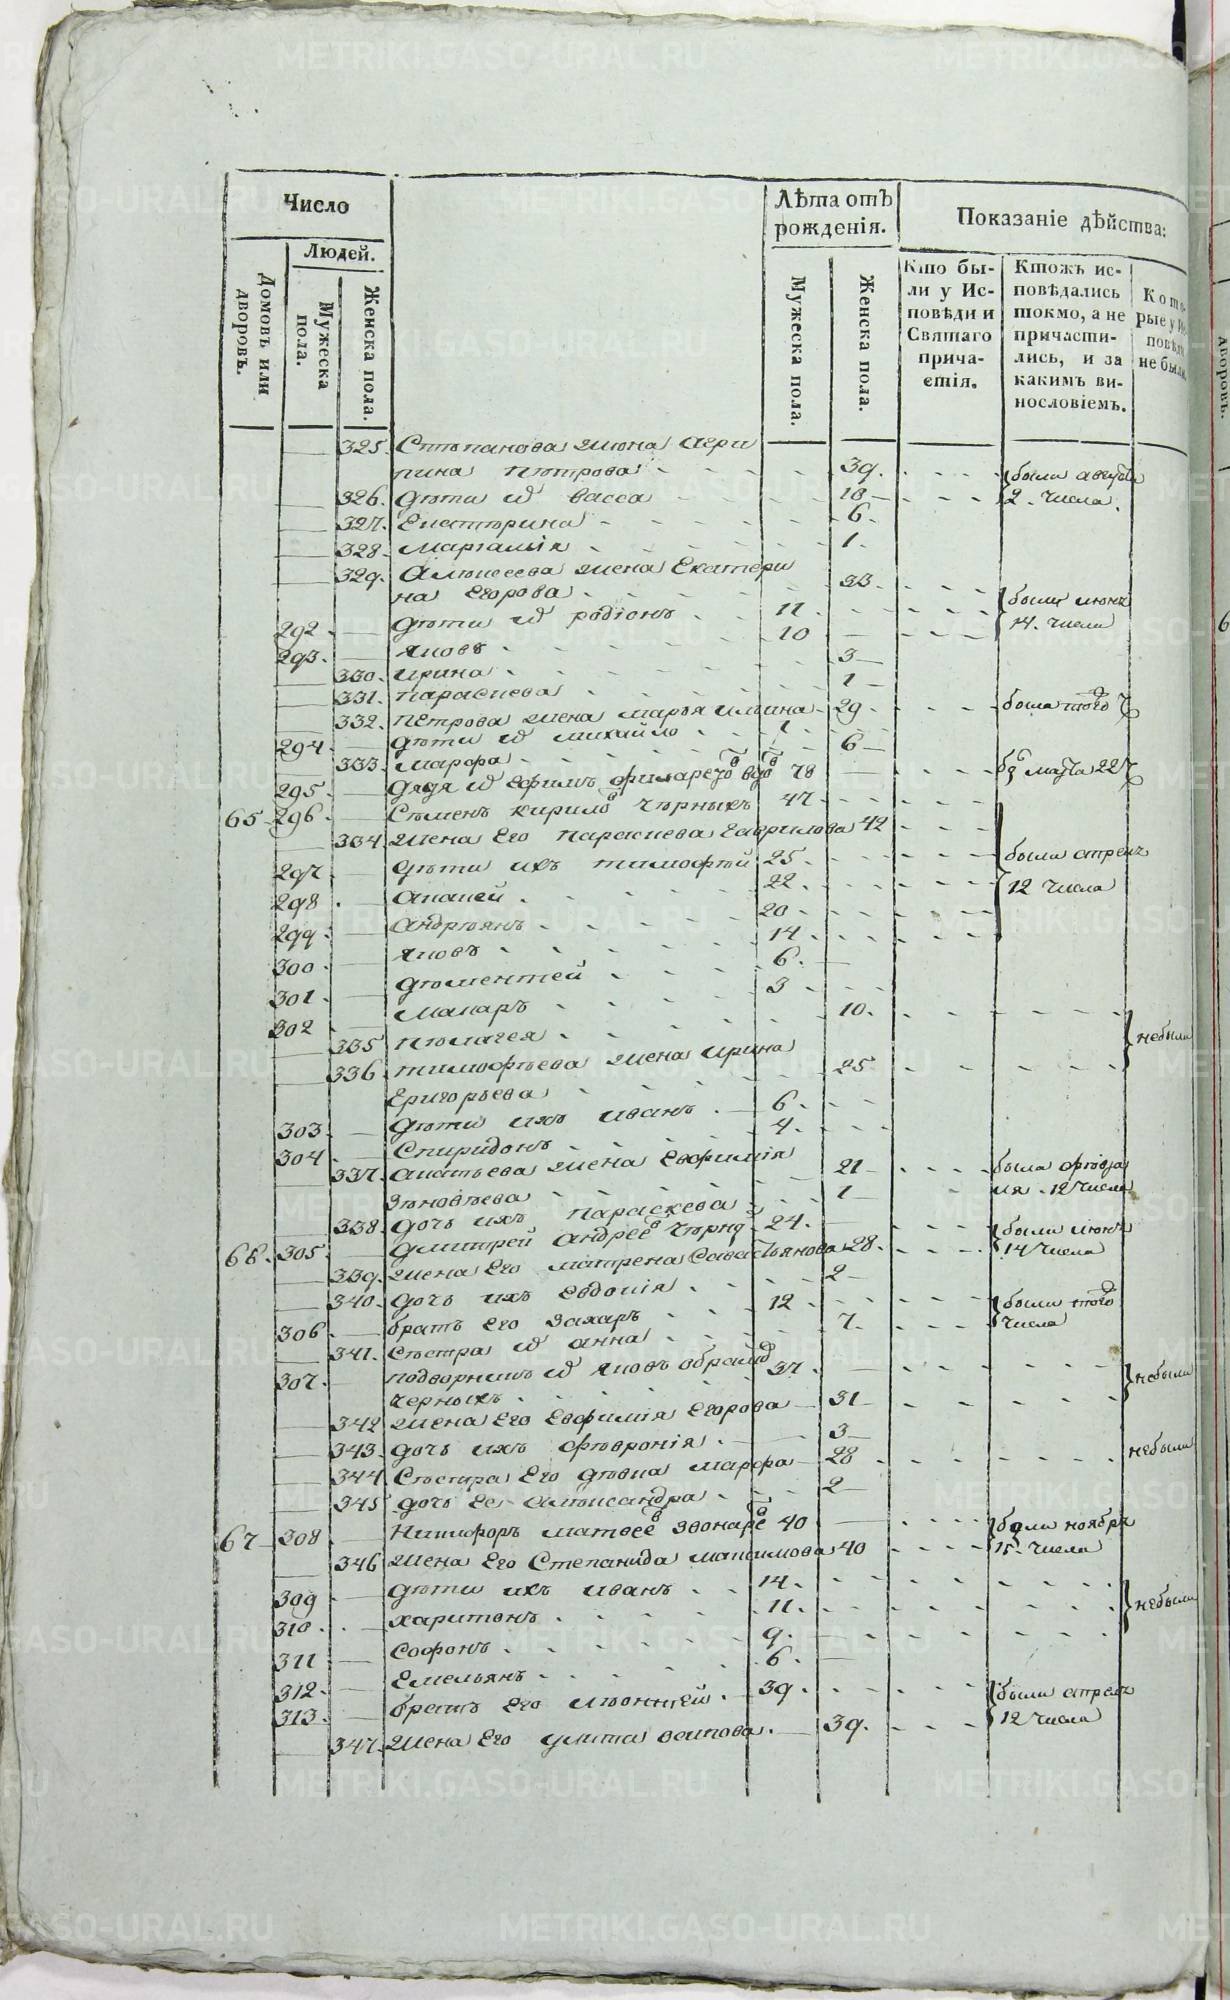 Число
Людей.
Домовъ или дворовъ.
Мужеска пола.
Женска пола.
Лѣта отъ рожденія.
Мужеска пола.
Женска пола.
Показаніе дѣйства:
Кто бы-
ли у Ис-
повѣди и
Святаго
прича-
стія.
Ктожъ ис-
повѣдались
токмо, а не
причасти-
лись, и за
какимъ ви-
нословіемъ.
Кото-
рые у Ис
повѣди
не были.
325. Степанова жена Агри
пина Петрова 39. были августа
326. дети ея васса 10 2. числа.
327. Екатерина 6.
328. Мартамія 1.
329. Алексеева жена Екатери
на Егорова 33 были июня
292. дети ея родіонъ 11. 14. числа
293. яковъ 10
330. ирина 3
331. параскева 1
332. Петрова жена марья ильина 29. была того ч
294. дети ея михайло 1
333. марфа 6
295. дядя ея ефимъ филаретовъ вдовъ 78 марта 22 ч
65 296. Семенъ кириловъ черныхъ 47
334 жена его параскева гаврилова 42
297. дети ихъ тимофей 25. были апреля
298. Ананей 22. 12 числа
299. андреянъ 20
300. яковъ 14
301. дементей 6.
302 макаръ 3
335 пелагея 10. небыли
336 тимофеева жена ирина
григорьева 25
303. дети ихъ иванъ 6
304. Спиридонъ 4.
337. ананьева жена евфимія
зеновьева 21 была февра
338. дочь ихъ параскева 1 ля 12 числа
66. 305. дмитрей андреевъ черных 24. были июня
339. жена его матрена Савастьянова 28. 14 числа
340. дочь ихъ евдокія 2
306. братъ его захаръ 12 были того
341. сестра ея анна 7. числа
307. подворникъ ея яковъ
черныхъ 37. небыли
342 жена его евфимія егорова 31
343. дочь ихъ февронія 3
344 Сестра его девка марфа 28 небыли
345 дочь ее александра 2
67 308. Никифоръ матвеевъ звонаревъ 40 были ноября
346 жена его Степанида максимова 40 15. числа
309 дети ихъ иванъ 14.
310. харитонъ 11. небыли
311 Софонъ 9.
312. Емельянъ 6.
313. братъ его леонтей 39. были апреля
347. жена его улита осипова. 39. 12 числа
METRIKI.GASO-URAL.RU